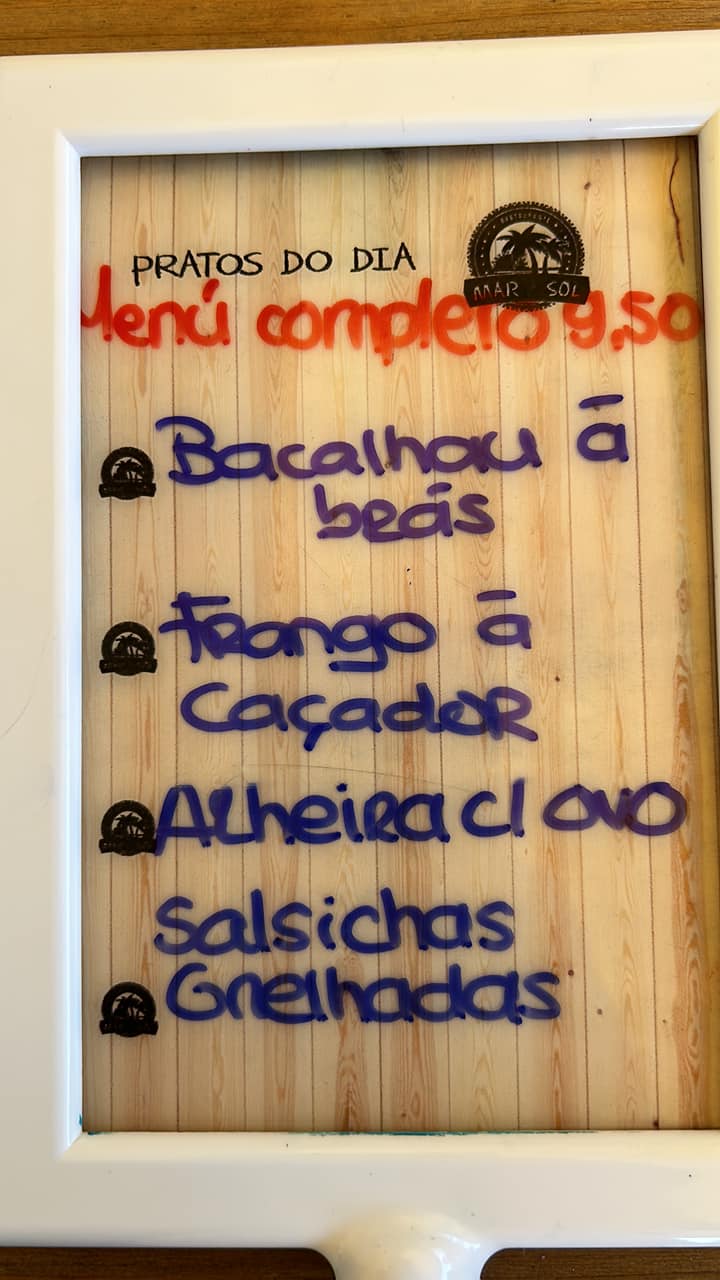 RESTAURANTE
MAR SOL
PRATOS DO DIA
Menú completo 9,50
Bacalhau ā
beás
Frango ā
Caçador
Alheira c/ ovo
Salsichas
Grelhadas